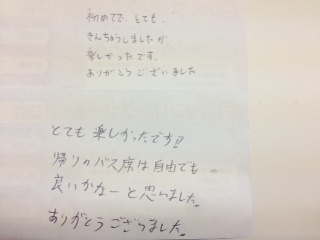 初めてで、とても、
きんちょうしましたが、
楽しかったです。
ありがとうございました
とても楽しかったです!!
帰りのバス席は自由でも。
良いかなーと思いました。
ありがとうございました。